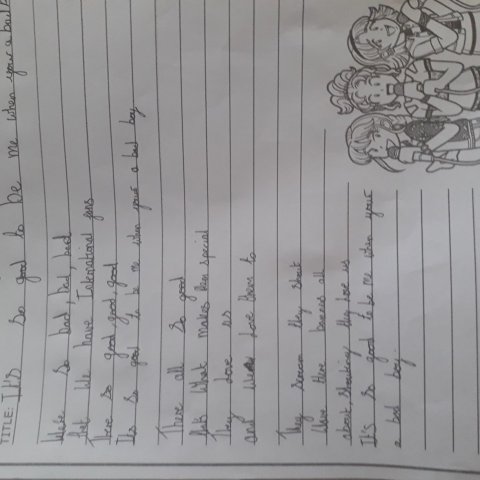 TITLE: It's so good to be me when your a bad
We're so bad, bad, bad
that We have International fans
There so good good good
It's so good to be me when your a bad boy
There all so good
that's What makes them special
They love us
and We love them to
They Scream they shout
Wave there banners all
about, shouting they love us
It's so good to be me when your
a bad boy.